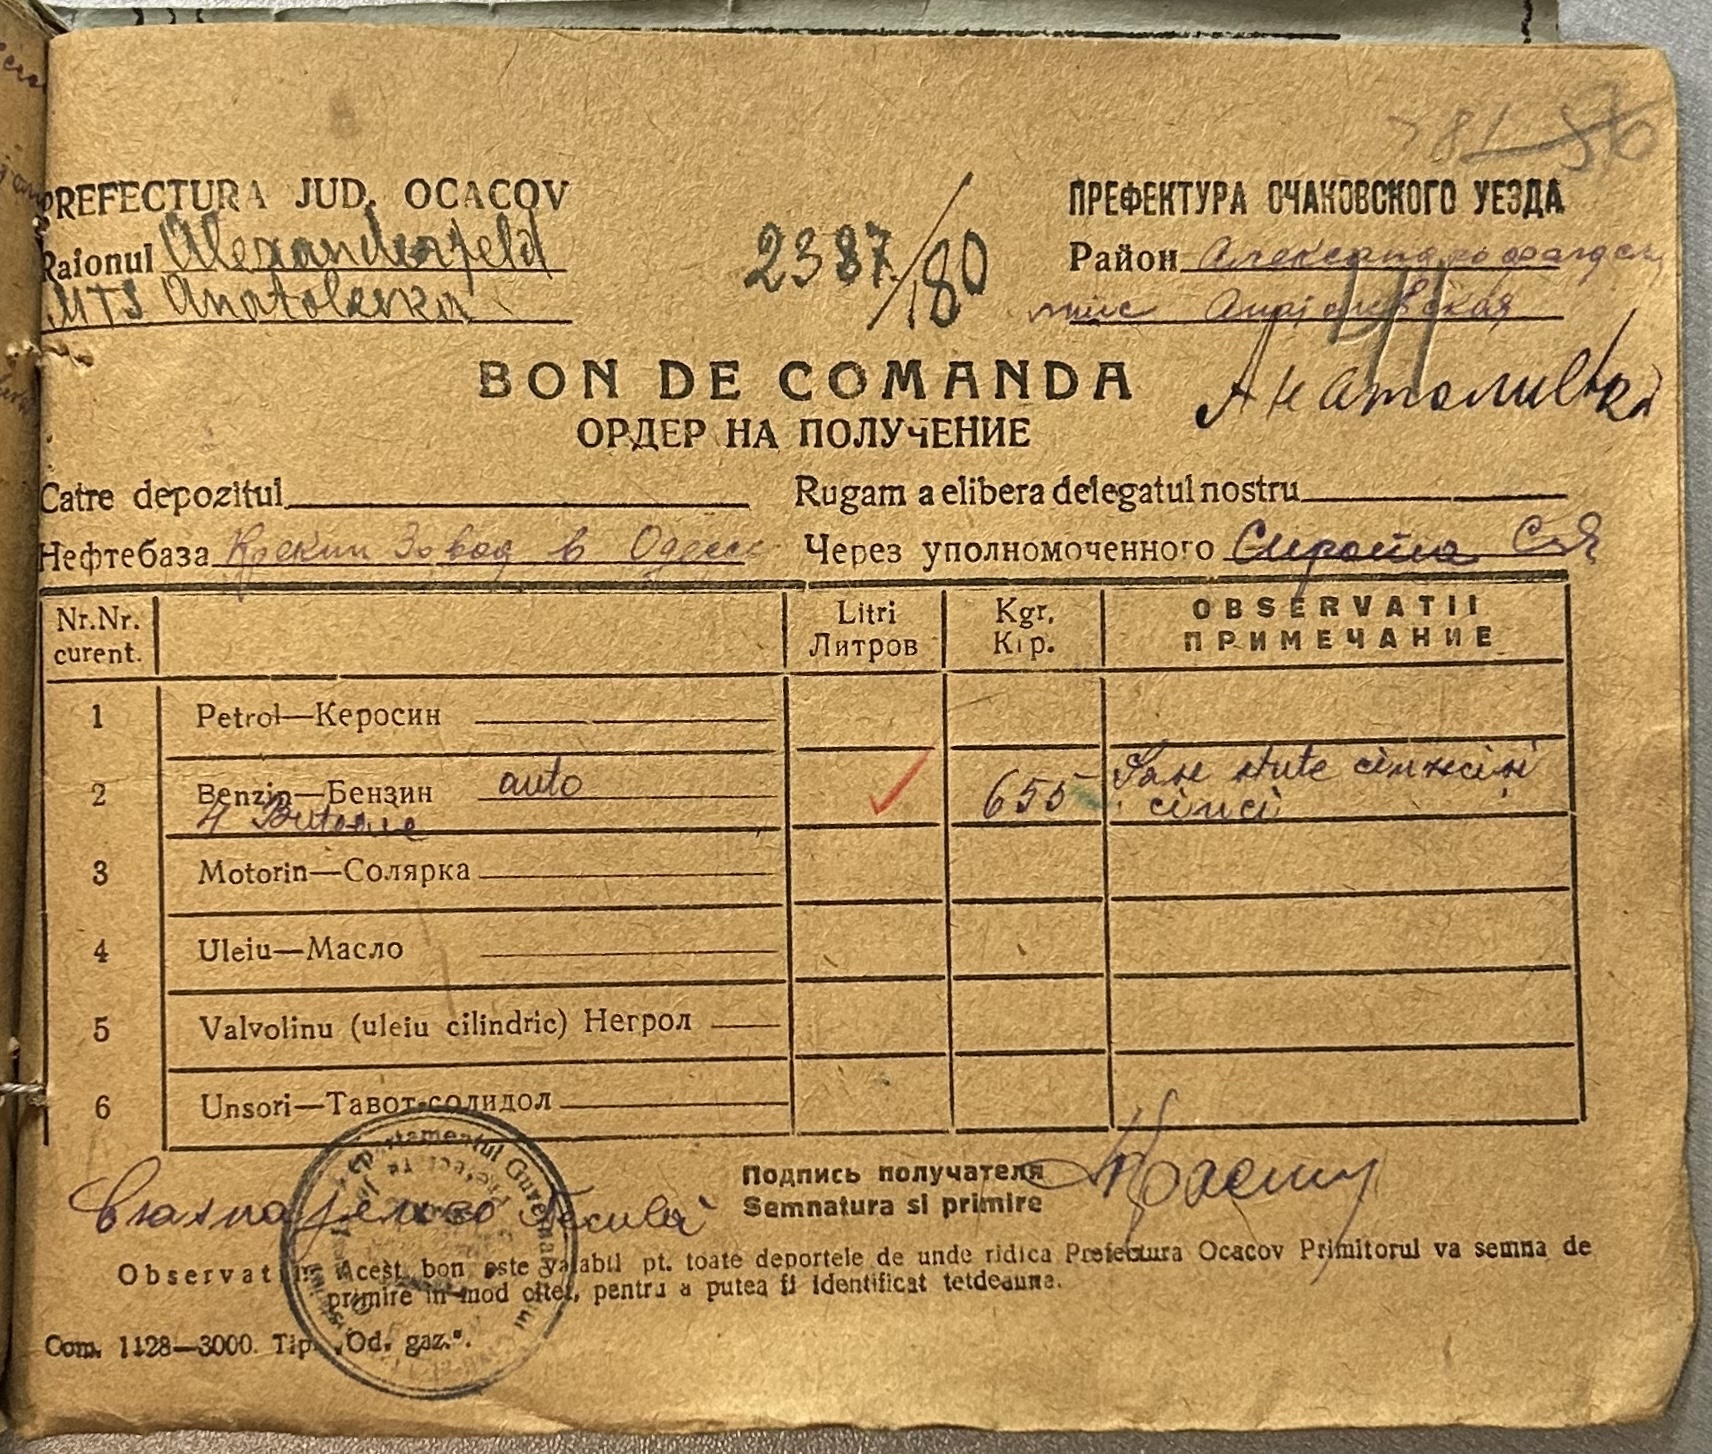 PREFECTURA JUD. OCACOV
Raionul Alexanderfeld
MTS Anatolevka
2387/180
ПРЕФЕКТУРА ОЧАКОВСКОГО УЕЗДА
Район
Анатоливка
BON DE COMANDA
ОРДЕР НА ПОЛУЧЕНИЕ
Catre depozitul Rugam a elibera delegatul nostru
Нефтебаза Крекин Завод в Одесс Через уполномоченного Сирота С Я
Nr. Nr. curent. Litri Литров Kgr. Кгр. OBSERVATII ПРИМЕЧАНИЕ
1 Petrol—Керосин
2 Benzin—Бензин auto 655 Sase sute cinzeci si
4 Butoaie cinci
3 Motorin—Солярка
4 Uleiu—Масло
5 Valvolinu (uleiu cilindric) Негрол
6 Unsori—Тавот-солидол
Подпись получателя
Semnatura si primire
Observatii: Acest bon este valabil pt. toate deportele de unde ridica Prefectura Ocacov Primitorul va semna de
primire in mod citet, pentru a putea fi identificat tetdeauna.
Com. 1128—3000. Tip. „Od. gaz.".